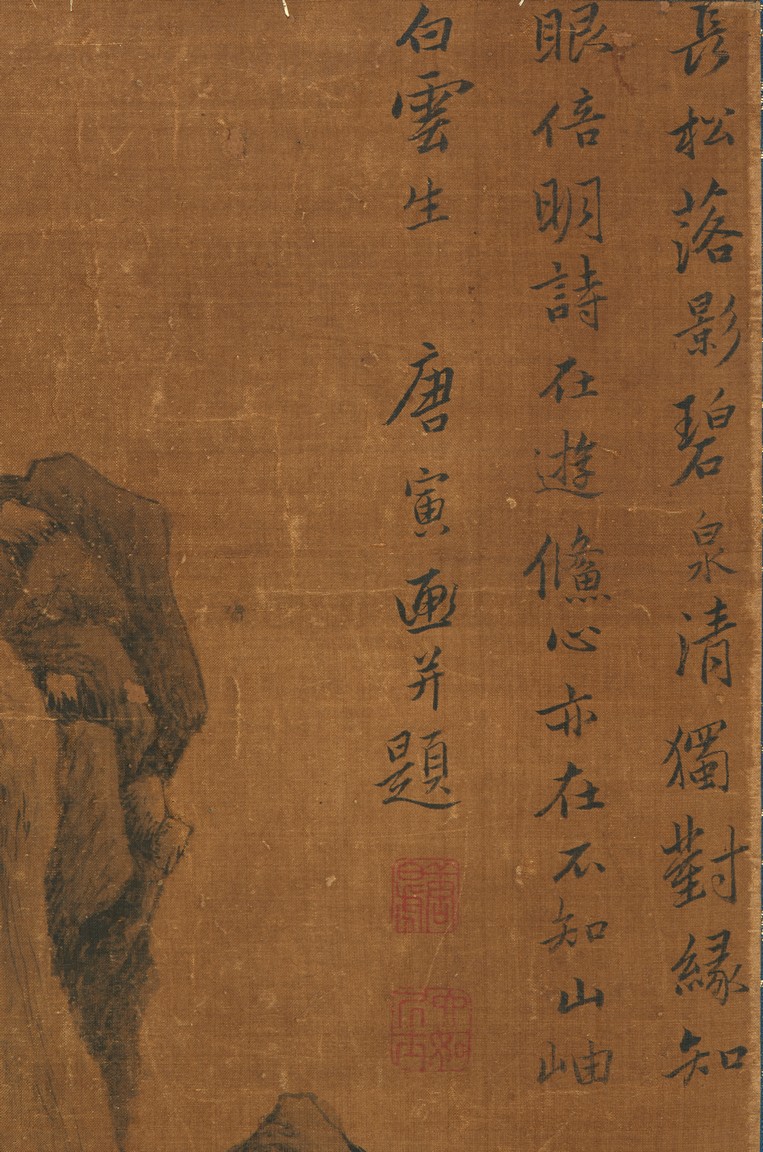 長松落影碧泉清獨對緣知
眼倍明詩在遊鯈心亦在不知山岫
白雲生 唐寅画并題